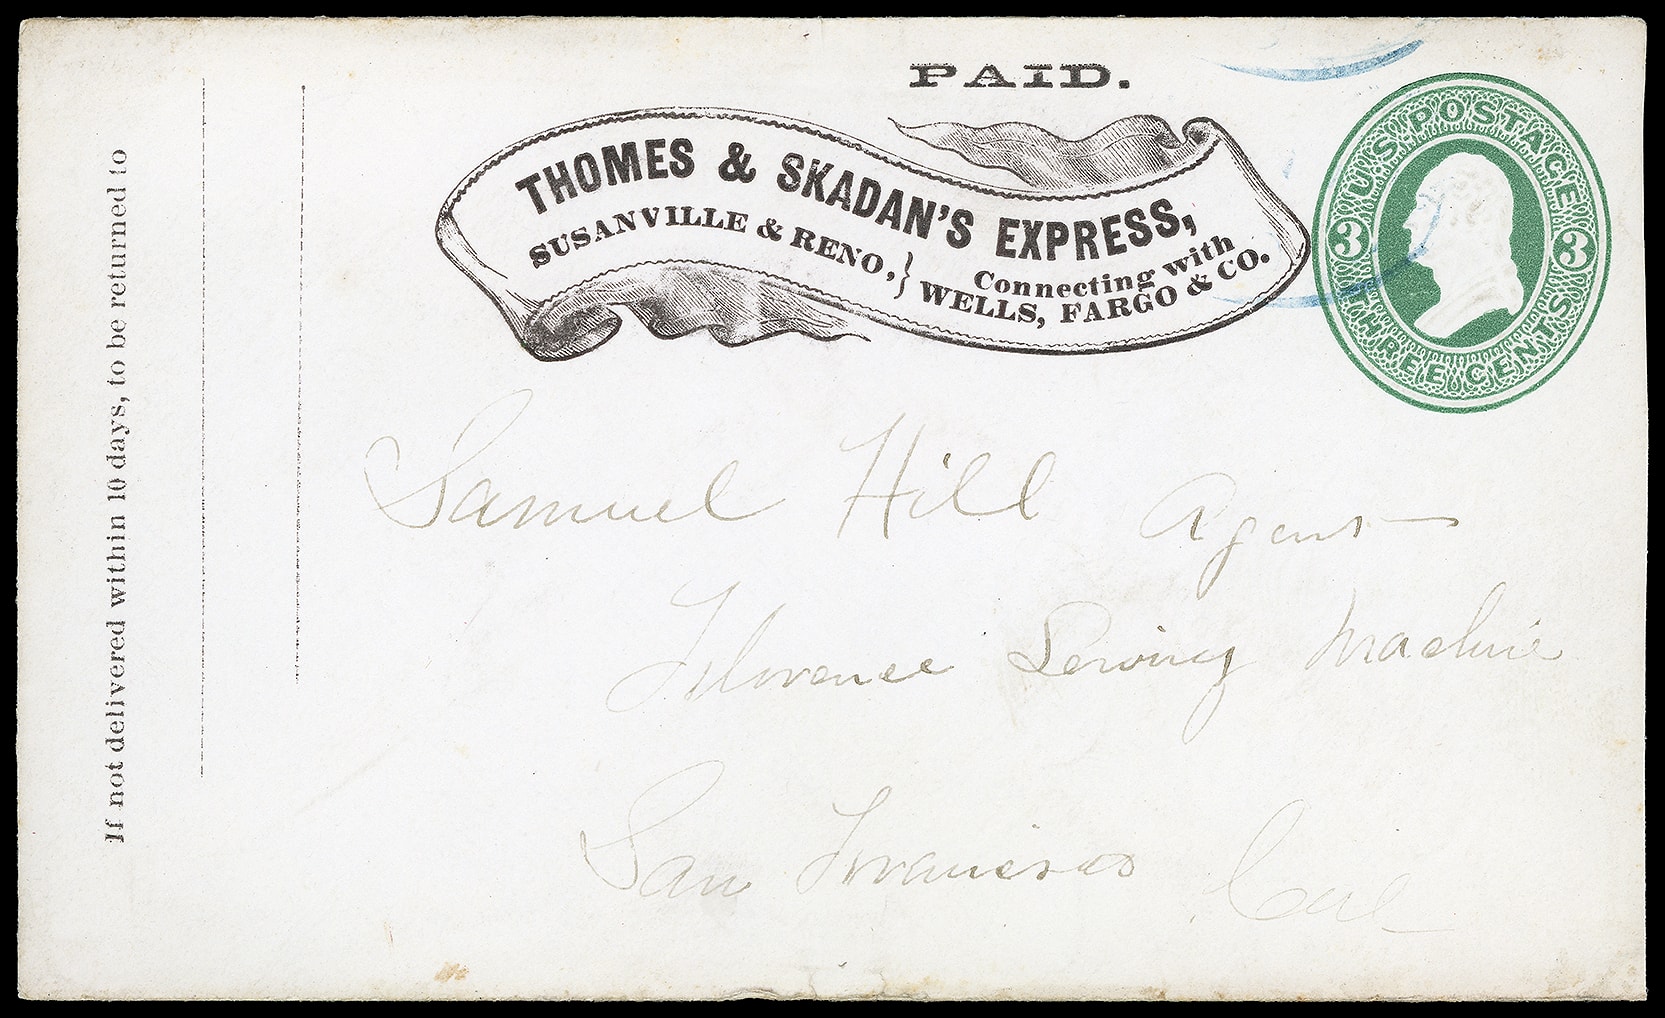 PAID.
THOMES & SKADAN'S EXPRESS,
SUSANVILLE & RENO, } Connecting with
WELLS, FARGO & CO.
U.S. POSTAGE
3 3
THREE CENTS
If not delivered within 10 days, to be returned to
Samuel Hill Agent
Florence Sewing Machine
San Francisco Cal